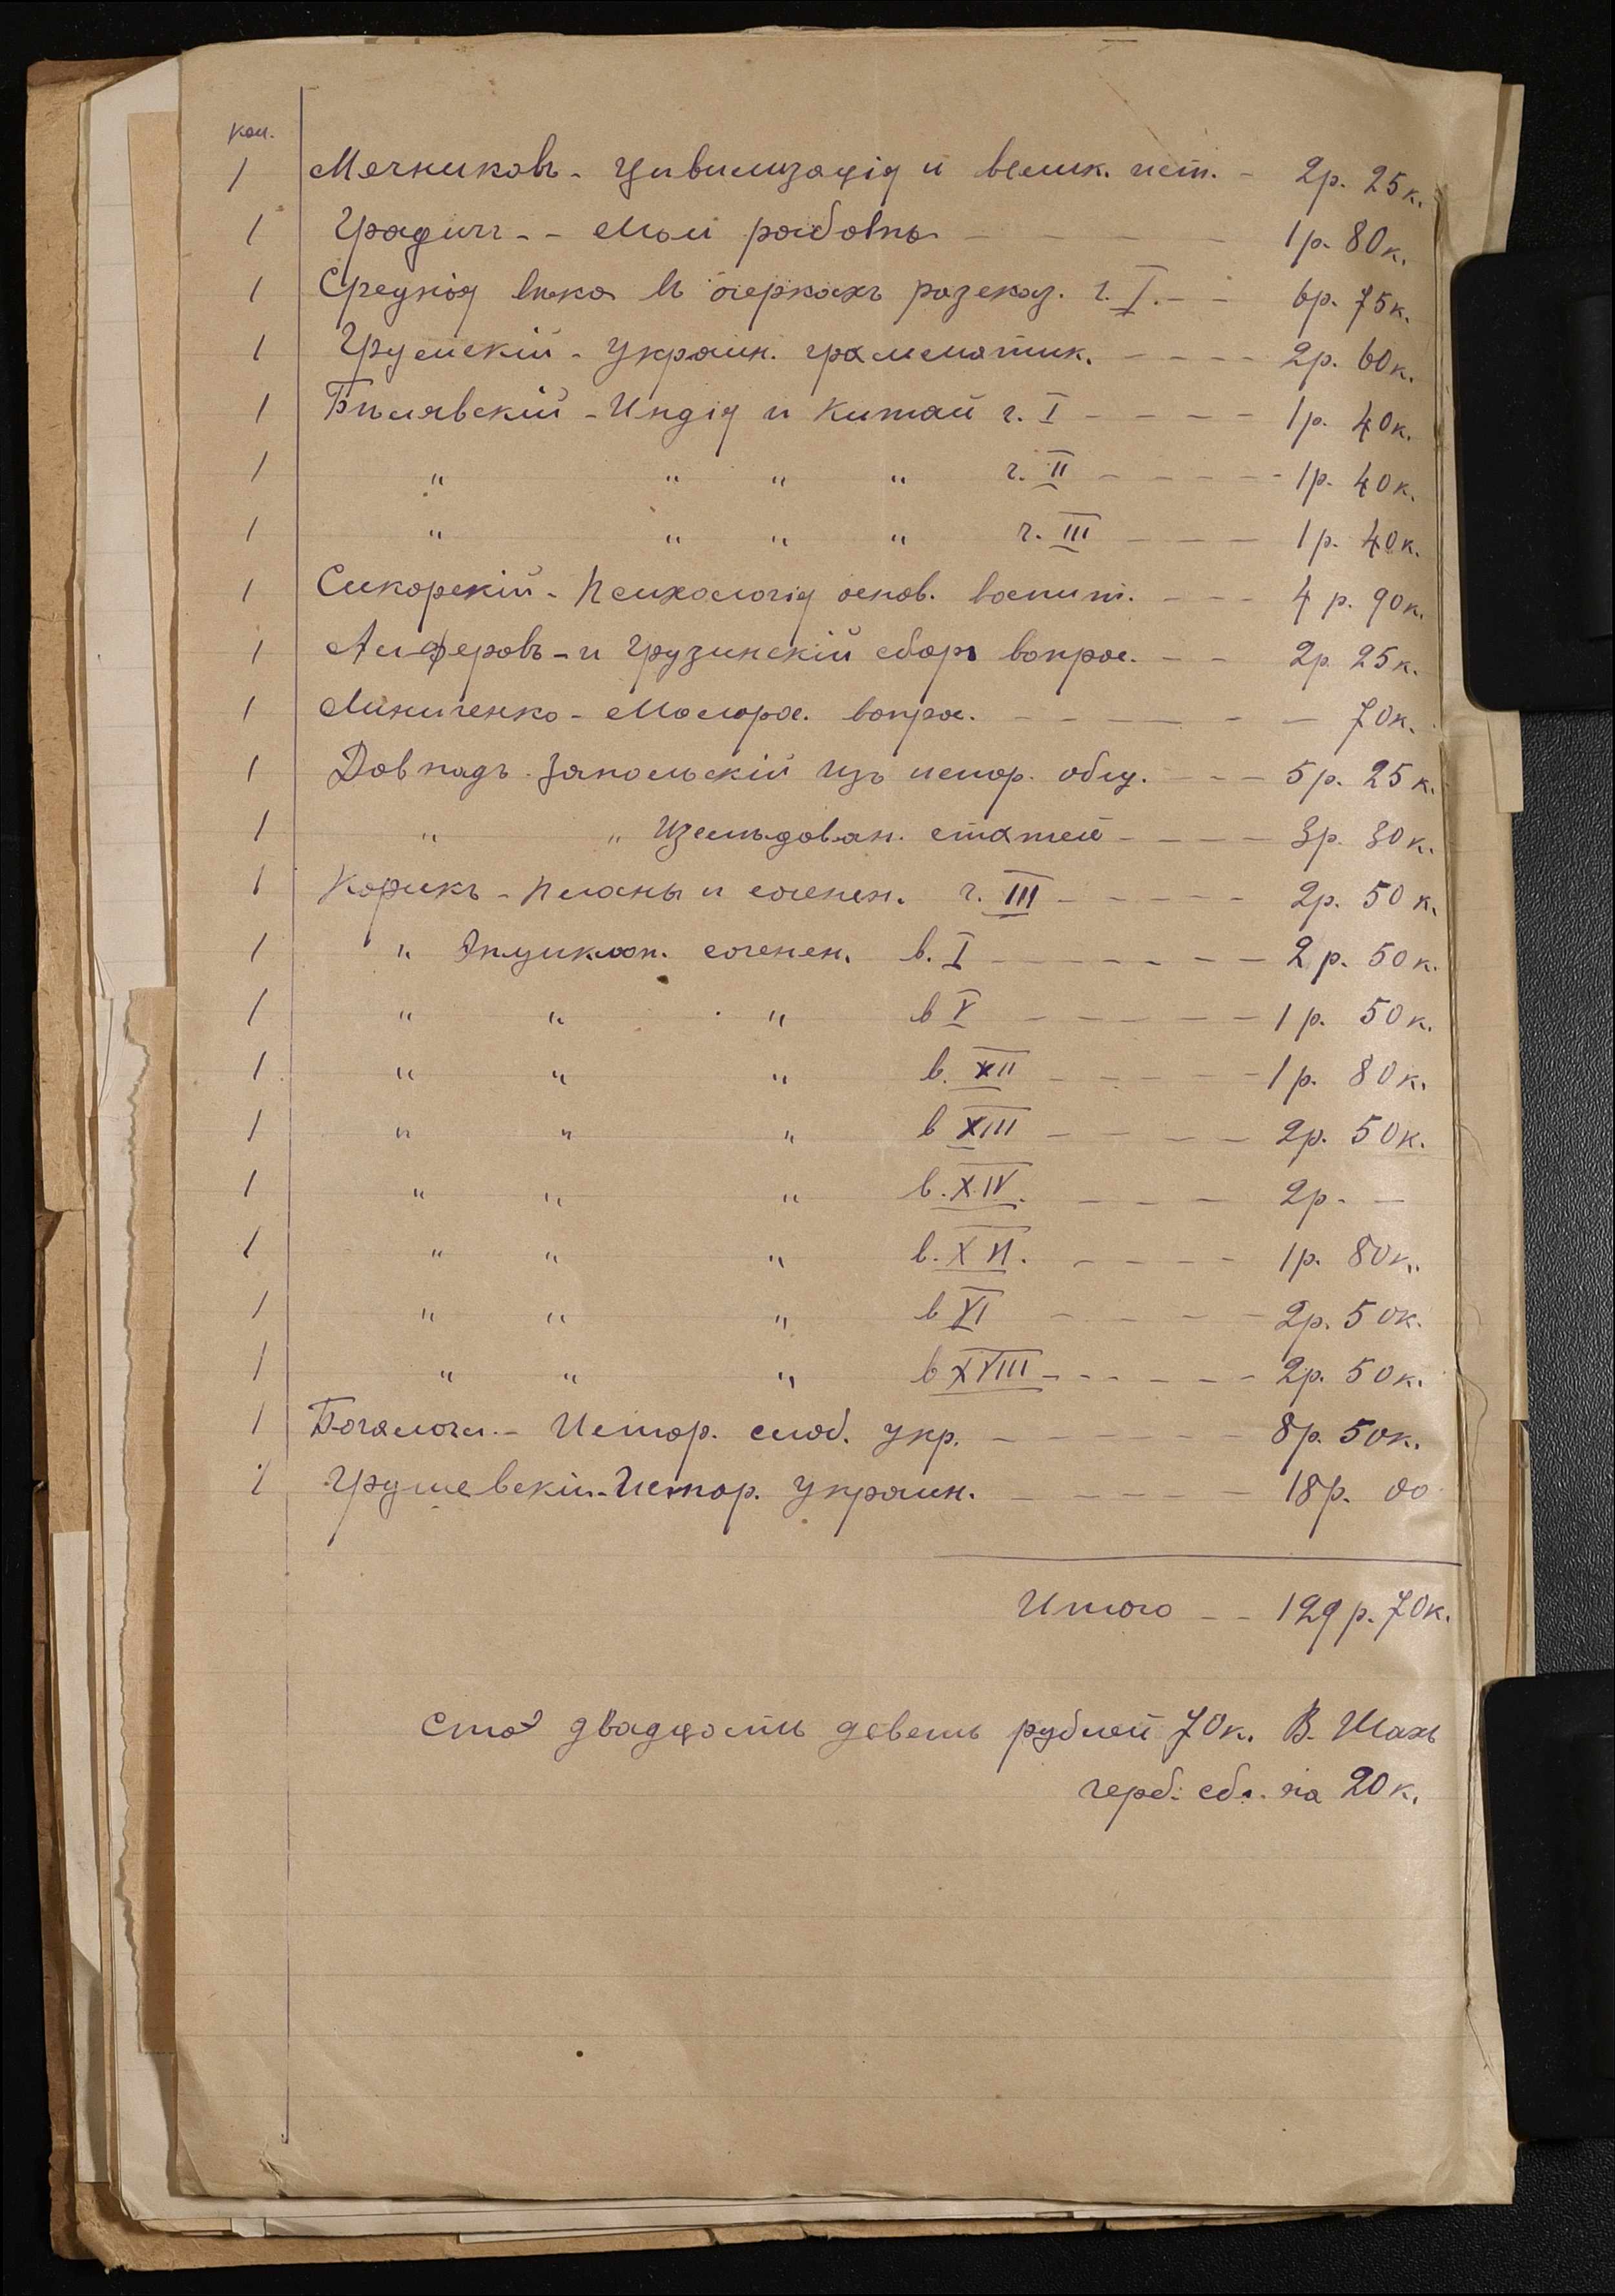 кол.
1 Мечниковъ - Цивилизація и велик. ист. - 2р. 25к.
1 Градичъ - - Мои работы - - - - 1р. 80к.
1 Среднія вѣка въ очеркахъ разсказ. ч. I. - - 6р. 75к.
1 Грунскій - Украин. грамматик. - - - - 2р. 60к.
1 Бѣлявскій - Индія и Китай ч. I - - - - 1р. 40к.
1 " " " " ч. II - - - - - 1р. 40к.
1 " " " " ч. III - - - 1р. 40к.
1 Сикорскій - Психологія основ. воспит. - - - 4р. 90к.
1 Алферовъ - и Грузинскій сборъ вопрос. - - 2р. 25к.
1 Линиченко - Малорос. вопрос. - - - - - - 70к.
1 Довнаръ - Запольскій Изъ истор. общ. - - - 5р. 25к.
1 " " Изслѣдован. статей - - - - 3р. 30к.
1 Корикъ - Планы и соченен. ч. III - - - - - 2р. 50к.
1 " Энциклоп. соченен. в. I - - - - - - 2р. 50к.
1 " " " в V - - - - - - 1р. 50к.
1 " " " в. XII - - - - - 1р. 80к.
1 " " " в XIII - - - - 2р. 50к.
1 " " " в. XIV. - - - - 2р. - -
1 " " " в. XVI. - - - - 1р. 80к.
1 " " " в VI - - - - - 2р. 50к.
1 " " " в XVIII - - - - - - 2р. 50к.
1 Богалѣй. - Истор. слоб. укр. - - - - - - 8р. 50к.
1 Грушевскій - Истор. Украин. - - - - - - 18р. 00
Итого - - 129р. 70к.
Сто двадцать девять рублей 70к. В. Шахъ
герб. сб. на 20к.